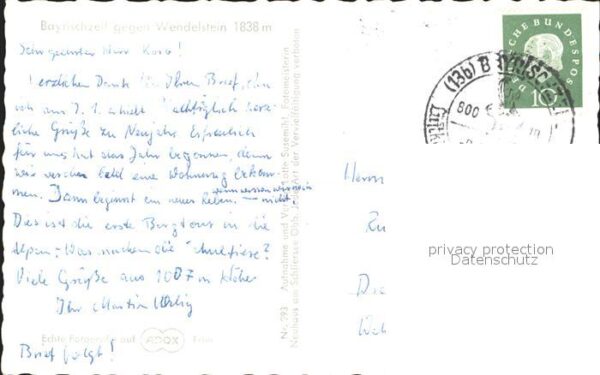 Bayrischzell gegen Wendelstein 1838 m
Sehr geehrter Herr Koro!
Herzlichen Dank für Ihren Brief, den
ich am 7. 1. erhielt. Nachträglich herz-
liche Grüße zu Neujahr. Erfreulich
für uns hat das Jahr begonnen, denn
wir werden bald eine Wohnung bekom-
men. Dann beginnt ein neues Leben. – wann wissen wir noch nicht –
Dies ist die erste Bergtour in die
Alpen. Was machen die
Viele Grüße aus 1087 m Höhe
Ihr Martin
Echte Fotografie auf ADOX Foto
Brief folgt!
Nr. 293 Aufnahme und Verlag Otto Susemihl, Fotomeisterin
Neuhaus am Schliersee Obb. Jede Art der Vervielf. verboten
DEUTSCHE BUNDESPOST
10
(13b) Bayrischzell
800
Herrn
Die
privacy protection
Datenschutz